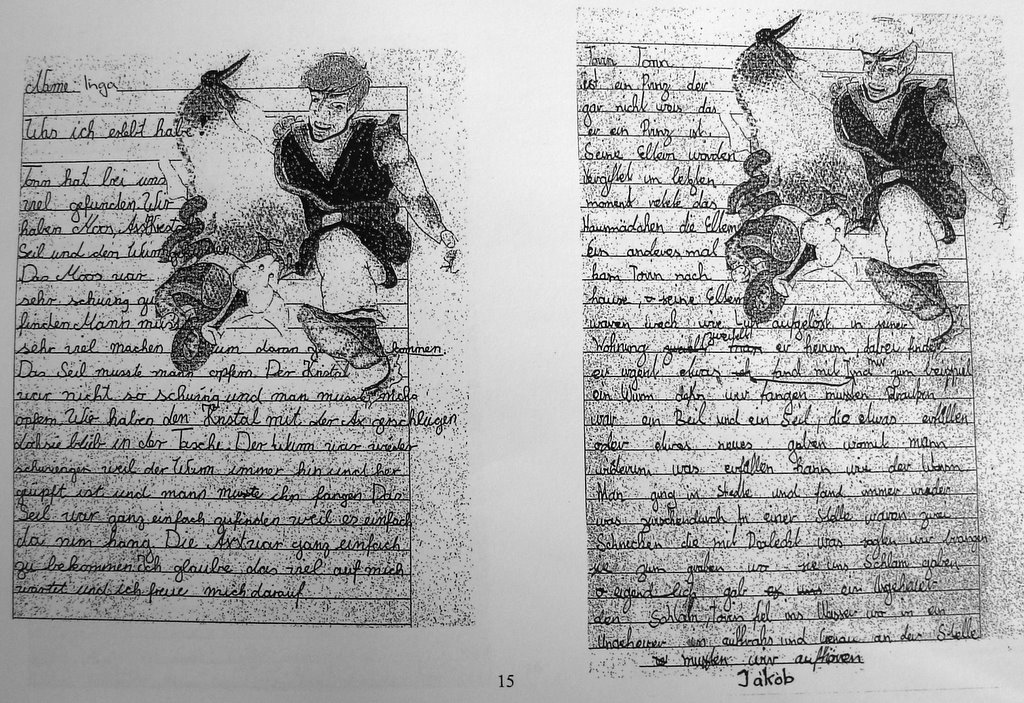 Name: Inga
Was ich erlebt habe
Torin hat bei uns
viel gefunden. Wir
haben Moos, Axt
Seil und den Wurm
Das Moos war
sehr schwirig zu
finden. Mann muss
sehr viel machen um daran kommen.
Das Seil musste mann opfern. Der Kristal
war nicht so schwirig und man musste nichts
opfern. Wir haben den Kristal mit der Axt
doch sie blib in der Tasche. Der Wurm war
weil der Wurm immer hin und her
gehüpft ist und mann musste ihn fangen. Das
Seil war ganz einfach zufinden weil es einfach
da rum hang. Die Axt war ganz einfach
zu bekommen. Ich glaube das viel auf mich
wartet und ich freue mich darauf.
Torin Torin
ist ein Prinz der
gar nicht weis das
er ein Prinz ist.
Seine Eltern wurden
vergiftet im letzten
moment rettete das
Hausmädchen die Eltern
ein anderes mal
kam Torin nach
hause, seine Eltern
waren wech wie Luft aufgelöst in seiner
Wohnung er herum dabei findet
er etwas fand mit zum beispiel
ein Wurm denn wir fangen mussten draußen
war ein Beil und ein Seil, die etwas erfüllen
oder etwas neues gaben womit mann
widerum was erfüllen kann wie der Wurm
Man ging in Stelle und fand immer wieder
was zwischendurch In einer Stelle waren zwei
Schnecken die mit Dialeckt was sagten wir
sie zum graben wo sie uns Schlam gaben
gab ein Ungeheuer
den Schlam, Torin fiel ins Wasser wo in ein
Ungeheuer und Genau an der Stelle
musten wir aufhören
Jakob
15